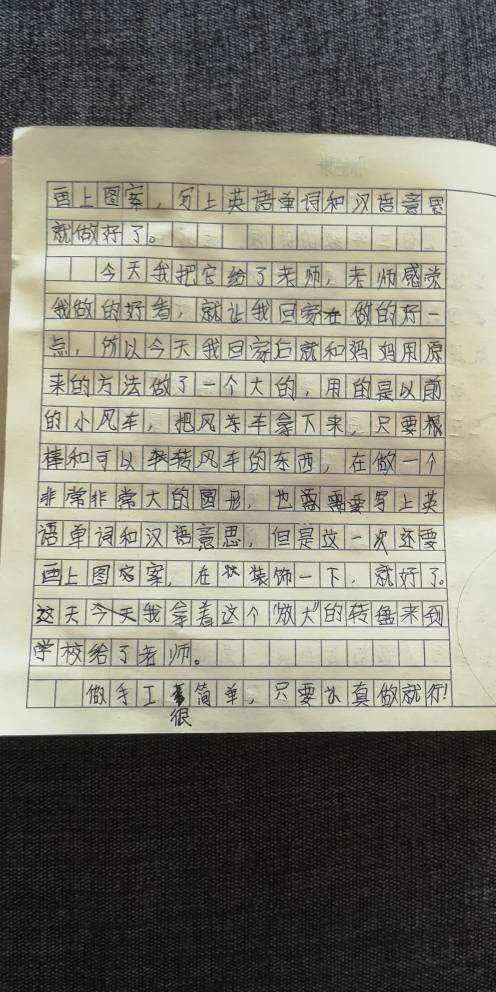 画上图案，写上英语单词和汉语意思
就做好了。
今天我把它给了老师，老师感觉
我做的好看，就让我回家在做的好一
点，所以今天我回家后就和妈妈用原
来的方法做了一个大的，用的是以前
的小风车，把风车拿下来，只要根
棒和可以转风车的东西，在做一个
非常非常大的圆形，也需要写上英
语单词和汉语意思，但是这一次还要
画上图案，在装饰一下，就好了。
这天今天我拿着这个"放大"的转盘来到
学校给了老师。
做手工很简单，只要认真做就行！